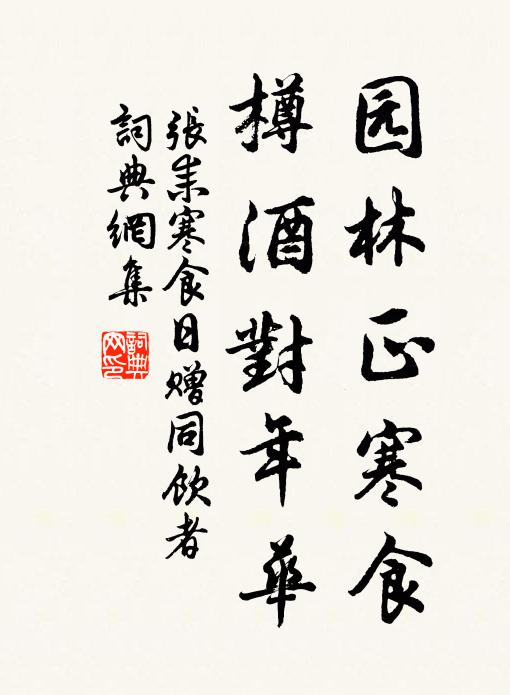 园林正寒食
樽酒對年華
張耒寒食日赠同飲者
詞典網集
詞典
网印